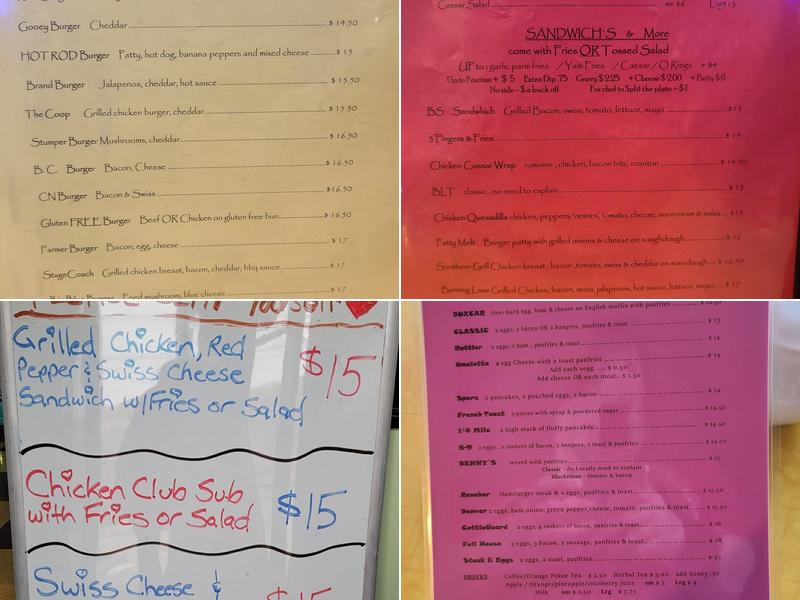 Gooey Burger Cheddar $ 14.50
HOT ROD Burger Patty, hot dog, banana peppers and mixed cheese $ 15
Brand Burger Jalapenos, cheddar, hot sauce $ 15.50
The Coop Grilled chicken burger, cheddar $ 15.50
Stumper Burger Mushrooms, cheddar $ 16.50
B.C Burger Bacon, Cheese $ 16.50
CN Burger Bacon & Swiss $16.50
Gluten FREE Burger Beef OR Chicken on gluten free bun $ 16.50
Farmer Burger Bacon, egg, cheese $ 17
StageCoach Grilled chicken breast, bacon, cheddar, bbq sauce $ 17
Burger Fried mushroom, blue cheese $ 17
Caesar Salad sm $6 Lrg
SANDWICH'S & More
come with Fries OR Tossed Salad
UP to : garlic parm fries / Yam Fries / Caesar / O Rings + $4
Up to Poutine + $ 5 Extra Dip .75 Gravy $2.25 + Cheese $2.00 + Patty $6
No side -$ a buck off For chef to Split the plate + $1
BS Sandwich Grilled Bacon, swiss, tomato, lettuce, mayo $ 15
3 Fingers & Fries $ 15
Chicken Caesar Wrap romaine , chicken, bacon bits, crouton $ 14.50
BLT classic.. no need to explain $ 15
Chicken Quesadilla chicken, peppers/onions, tomato, cheese, sourcream & salsa $ 15
Patty Melt Burger patty with grilled onions & cheese on soughdough $ 16
Southern Grill Chicken breast , bacon ,tomato, swiss & cheddar on sourdough $ 16.50
Burning Love Grilled Chicken, bacon, mozza, jalapenos, hot sauce, lettuce, mayo $ 17
Yourself
Grilled Chicken, Red
Pepper & Swiss Cheese
Sandwich w/Fries or Salad
$15
Chicken Club Sub
with Fries or Salad
$15
Swiss Cheese &
$15
BOXCAR Over hard egg, ham & cheese on English muffin with panfries
CLASSIC 2 eggs, 2 bacon OR 2 bangers, panfries & toast $ 13
Rattler 2 eggs, 1 ham , panfries & toast $ 14
Omelette 2 egg Cheese with 2 toast panfries $ 14
Add each vegg $ 0.50
Add cheese OR each meat $ 1.50
Spurs 2 pancakes, 2 pouched eggs, 2 bacon $ 14
French Toast 3 pieces with syrup & powdered sugar $ 14.50
1/4 Mile 2 high stack of fluffy pancakes $ 14.50
5-9 2 eggs , 2 rashers of bacon, 2 bangers, 2 toast & panfries $ 14.50
BENNY'S served with panfries $ 15
Classic - do I really need to explain
Blackstone - tomato & bacon
Rancher Hamburger steak & 2 eggs, panfries & toast $ 15.50
Denver 2 eggs ,ham,onion, green pepper,cheese, tomato, panfries & toast $ 15.50
CattleGuard 2 eggs, 4 rashers of bacon, panfries & toast $ 16
Full House 3 eggs, 3 bacon, 3 sausage, panfries & toast $ 18
Steak & Eggs 2 eggs, 2 toast, panfries $ 22
DRINKS : Coffee/Orange Pekoe Tea $ 2.50 Herbal Tea $ 3.00 add honey .50
Apple / Orange/pineapple/cranberry juice sm $ 3 Lrg $ 4
Milk sm $ 2.50 Lrg $ 3.75